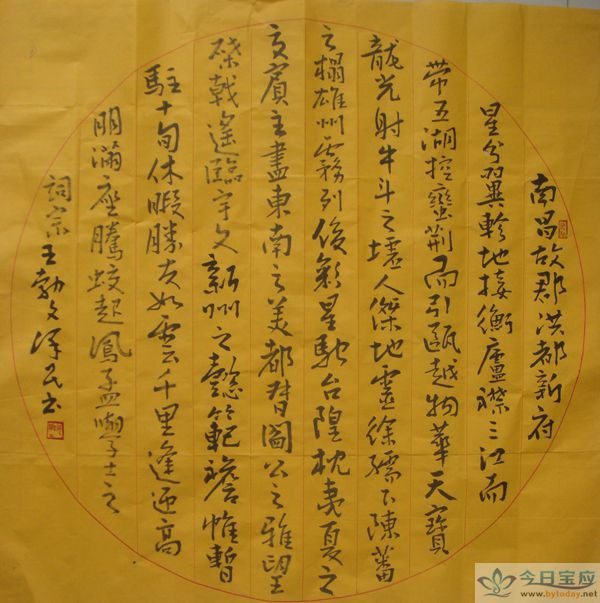 南昌故郡洪都新府
星分翼軫地接衡廬襟三江而
帶五湖控蠻荊而引甌越物華天寶
龍光射牛斗之墟人傑地靈徐孺下陳蕃
之榻雄州霧列俊彩星馳台隍枕夷夏之
交賓主盡東南之美都督閻公之雅望
棨戟遙臨宇文新州之懿範襜帷暫
駐十旬休暇勝友如云千里逢迎高
朋滿座騰蛟起鳳孟學士之
詞宗王勃文泽民书
今日宝应
www.bytoday.net